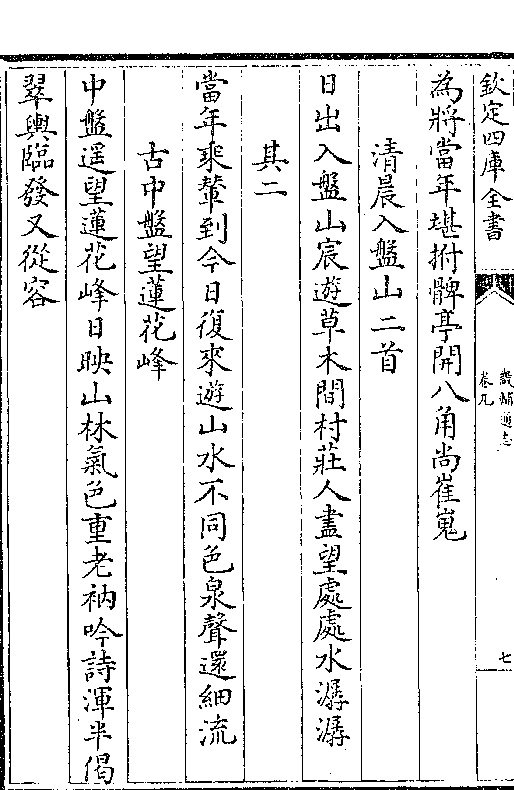 欽定四庫全書
畿輔通志
卷九
七
為將當年堪拊髀亭開八角尚崔嵬
清晨入盤山二首
日出入盤山宸遊草木間村莊人盡望處處水潺潺
其二
當年乘輦到今日復來遊山水不同色泉聲還細流
古中盤望蓮花峰
中盤遥望蓮花峰日映山林氣色重老衲吟詩渾半偈
翠輿臨發又從容